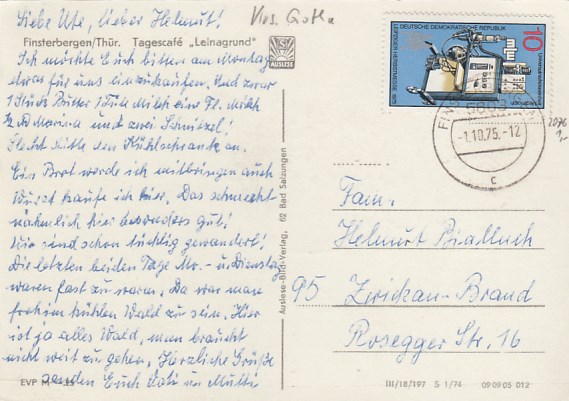 Liebe Ute, lieber Helmut!
Krs. Gotha
Finsterbergen/Thür. Tagescafé „Leinagrund"
AUSLESE
Ich möchte Euch bitten am Montag
etwas für uns einzukaufen. Und zwar
1 Stück Butter 1 Tüte Milch ein Fl. Milch
und zwei Schnitzel!
Steckt bitte den Kühlschrank an.
Ein Brot werde ich mitbringen auch
Wurst kaufe ich hier. Das schmeckt
nähmlich hier besonders gut!
Wir sind schon tüchtig gewandert!
Die letzten beiden Tage Mo.- u. Dienstag
waren fast zu warm. Da war man
froh im kühlen Wald zu sein. Hier
ist ja alles Wald, man braucht
nicht weit zu gehen. Herzliche Grüße
senden Euch Vati u. Mutti
EVP M -,25
Auslese-Bild-Verlag, 62 Bad Salzungen
DEUTSCHE DEMOKRATISCHE REPUBLIK
LEIPZIGER HERBSTMESSE 1975
10
-1.10.75.-12
c
2076
Fam.
Helmut Bialluch
95 Zwickau-Brand
Rosegger Str. 16
III/18/197 S 1/74 09 09 05 012